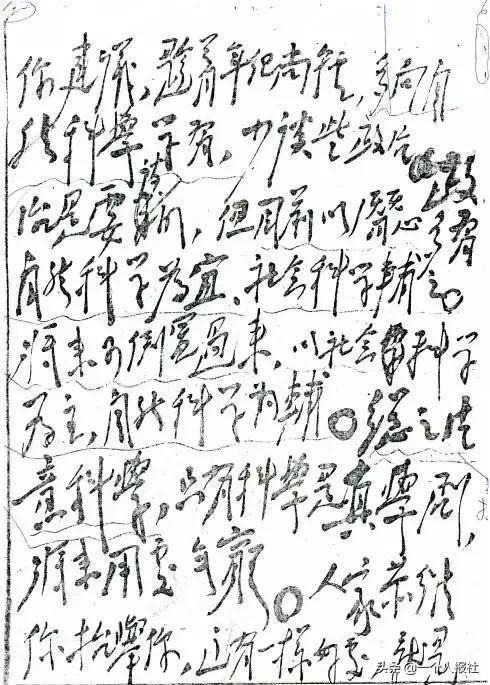 你建议,趁着年纪尚轻,多向自
然科学学习,少谈些政治。政
治是要谈的,但目前以潜心多习
自然科学为宜,社会科学辅之。
将来可倒置过来,以社会科学
为主,自然科学为辅。总之注
意科學,只有科學是真學问,
将来用处无穷。人家恭维
你抬舉你,这有一样好处,就是
头条 @一个人报社